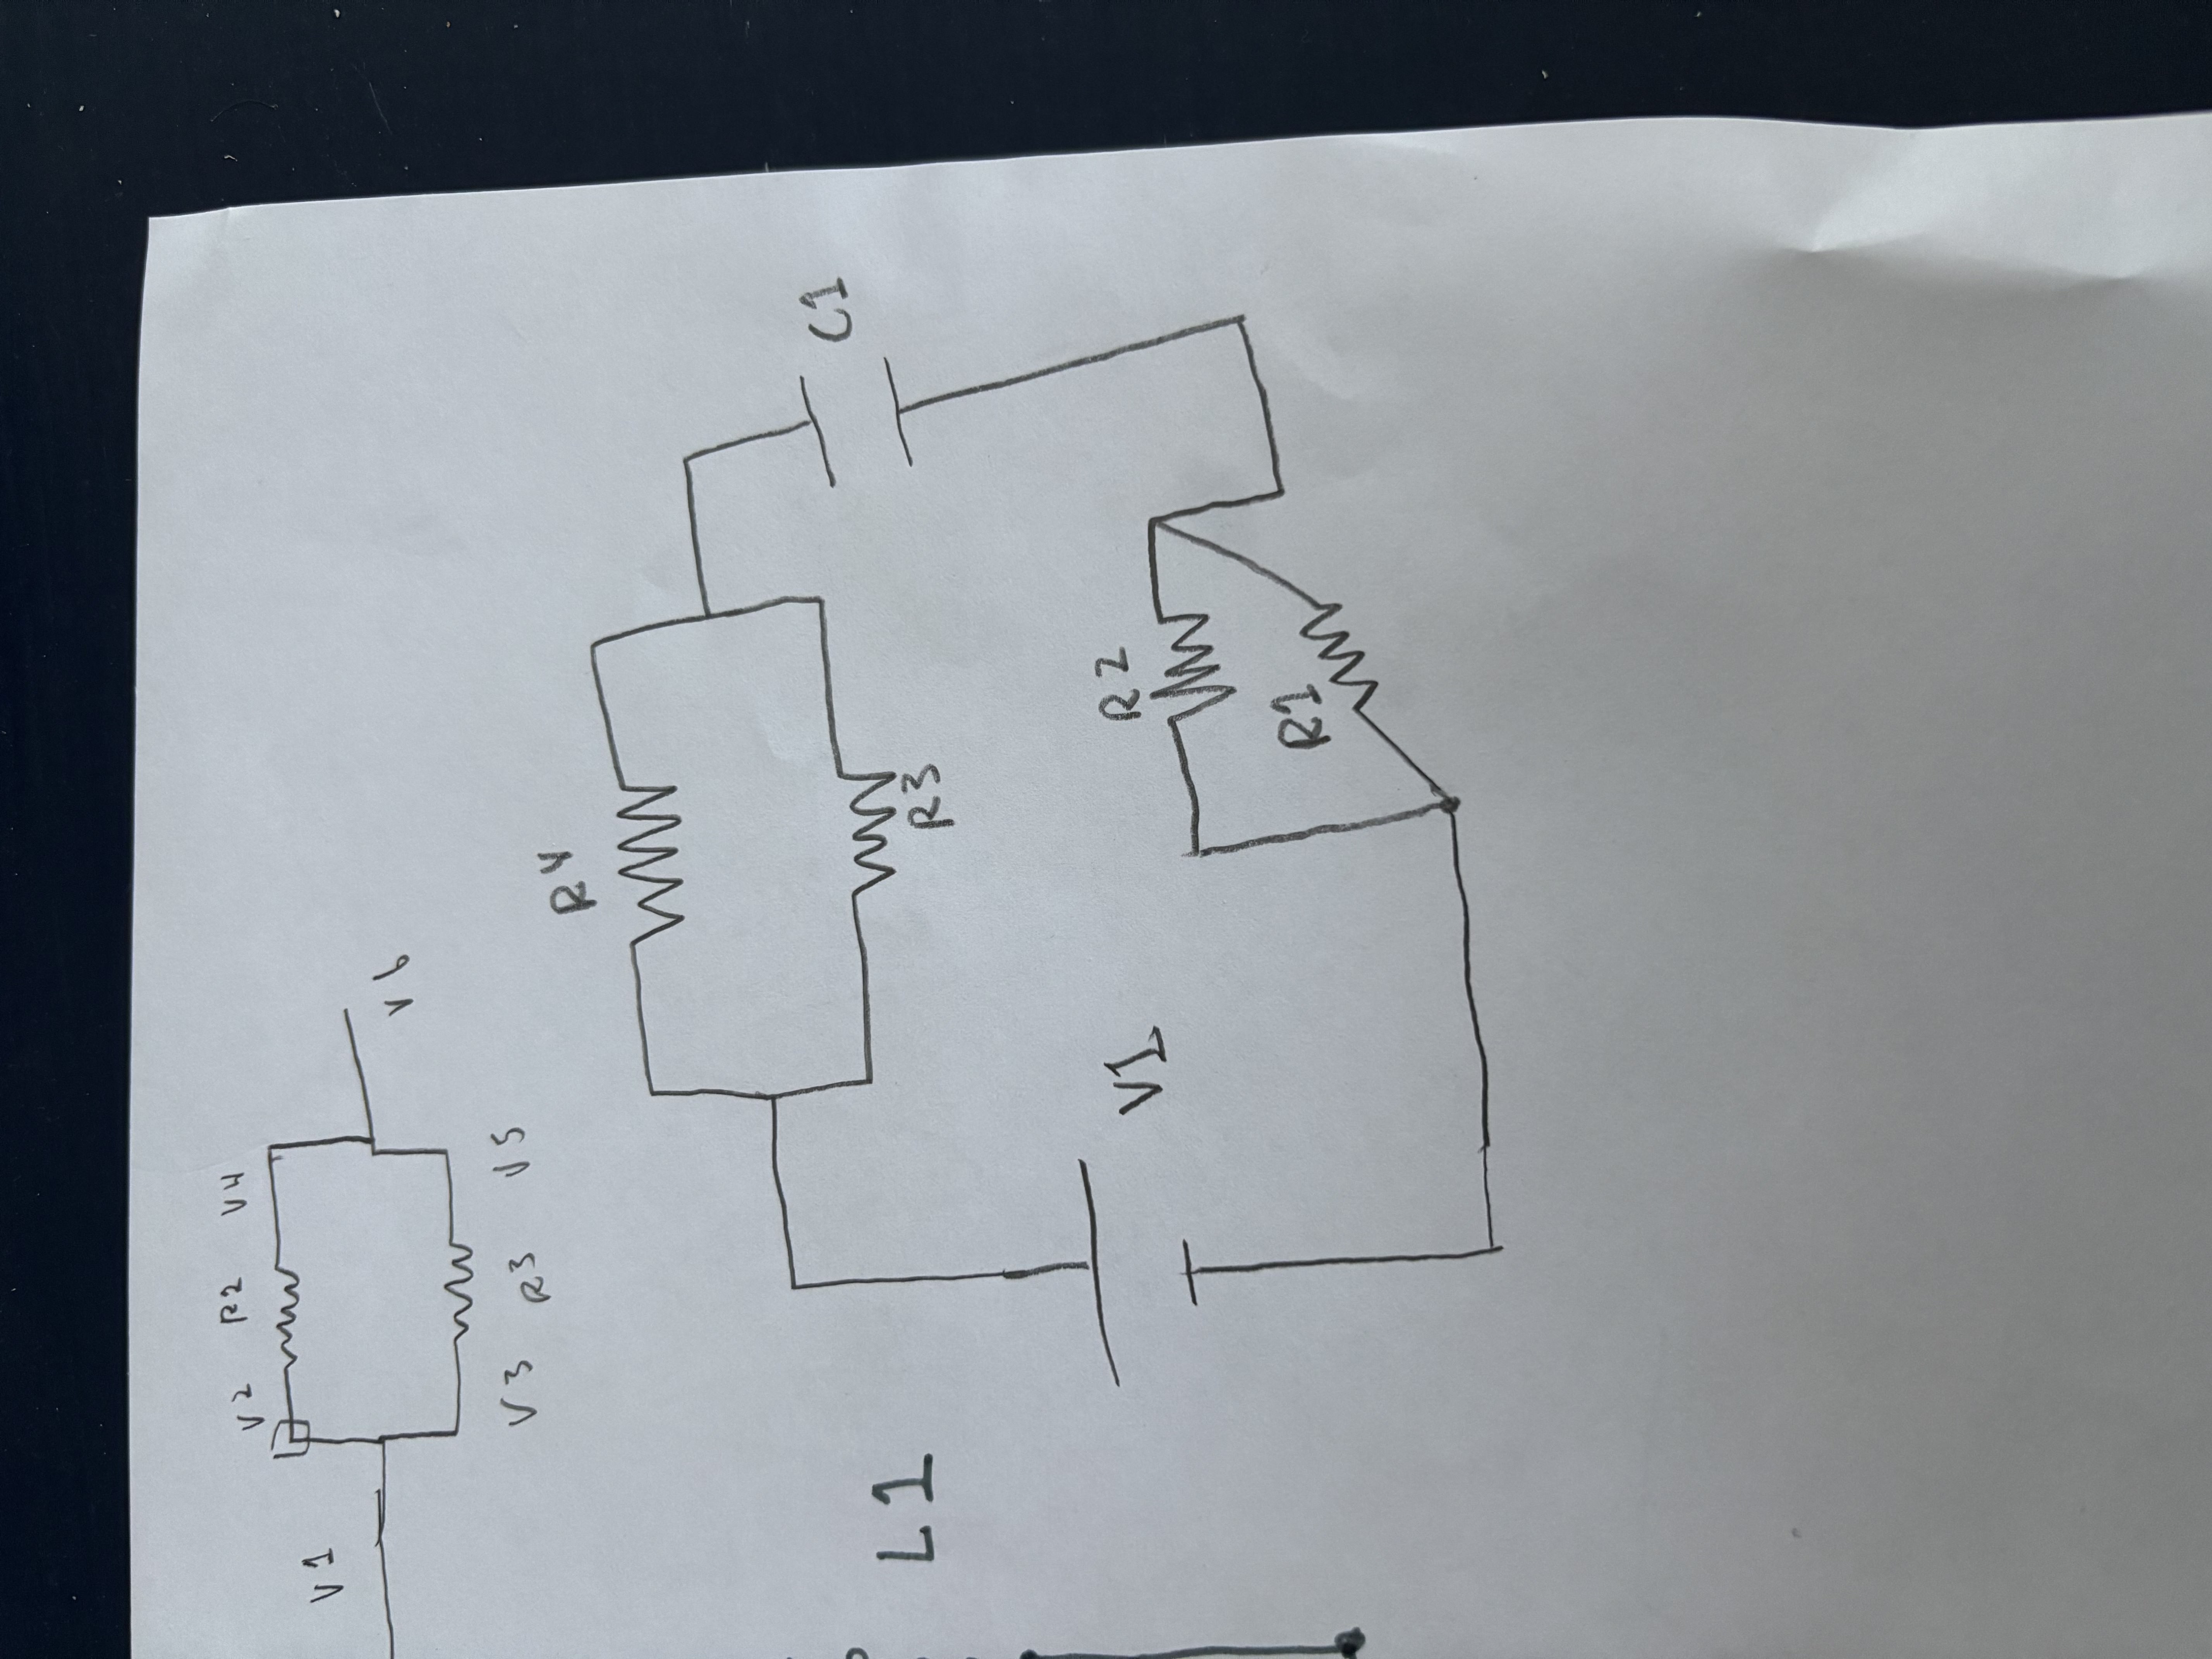 V2 R2 V4
V1
V6
V3 R3 V5
R4
C1
L1
R3
R2
V1
R1